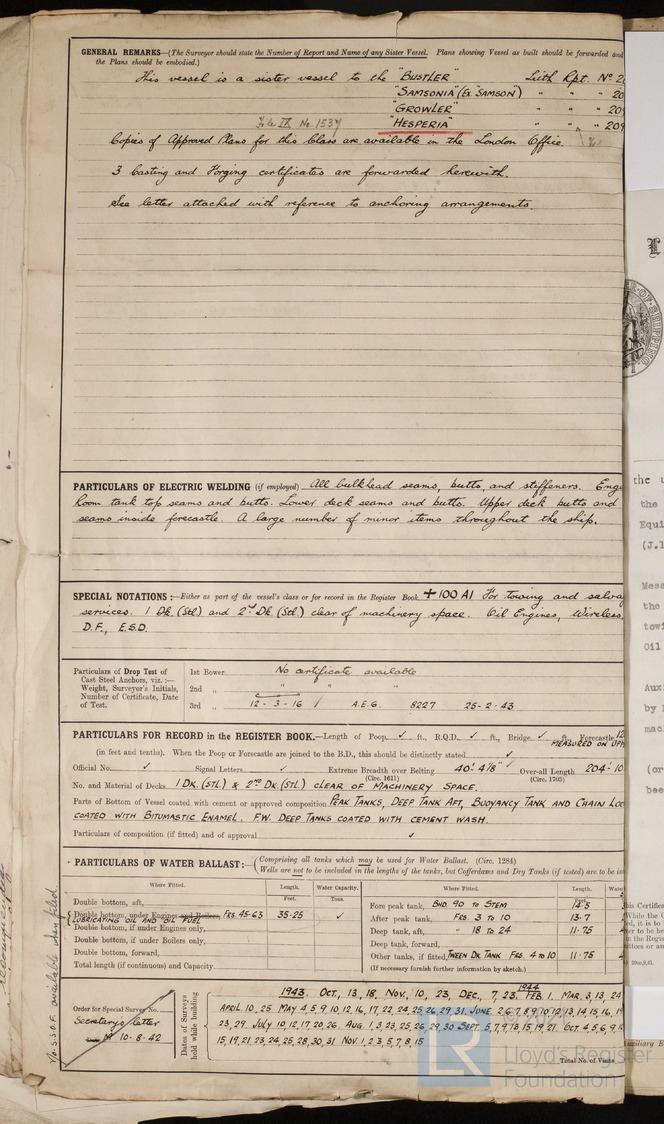 GENERAL REMARKS—(The Surveyor should state the Number of Report and Name of any Sister Vessel. Plans showing Vessel as built should be forwarded and
the Plans should be embodied.)
This vessel is a sister vessel to the "BUSTLER" Leith Rpt. No 2
"SAMSONIA" (Ex "SAMSON") " " " 20
"GROWLER" " " " 20
File IX No. 1537 "HESPERIA" " " " 209
Copies of Approved Plans for this Class are available in the London Office.
3 Casting and Forging certificates are forwarded herewith.
See letter attached with reference to anchoring arrangements.
PARTICULARS OF ELECTRIC WELDING (if employed) All bulkhead seams, butts, and stiffeners. Eng
Room tank top seams and butts. Lower deck seams and butts. Upper deck butts and
seams inside forecastle. A large number of minor items throughout the ship.
SPECIAL NOTATIONS:—Either as part of the vessel's class or for record in the Register Book. +100 A1 For towing and salva
services. 1 Dk. (Stl) and 2nd Dk. (Stl) clear of machinery space. Oil Engines, Wireless,
D.F., E.S.D.
Particulars of Drop Test of
Cast Steel Anchors, viz.:—
Weight, Surveyor's Initials,
Number of Certificate, Date
of Test.
1st Bower No certificate available
2nd " " " "
3rd " 12-3-16 A.E.G. 8227 25-2-43
PARTICULARS FOR RECORD in the REGISTER BOOK.—Length of Poop ✓ ft., R.Q.D. ✓ ft., Bridge ✓ ft., Forecastle 12
MEASURED ON UPP
(in feet and tenths). When the Poop or Forecastle are joined to the B.D., this should be distinctly stated ✓
Official No. ✓ Signal Letters ✓ Extreme Breadth over Belting 40' 4⅛" Over-all Length 204'-10
(Circ. 1611) (Circ. 1703)
No. and Material of Decks 1 DK. (STL) & 2ND DK. (STL) CLEAR OF MACHINERY SPACE.
Parts of Bottom of Vessel coated with cement or approved composition PEAK TANKS, DEEP TANK AFT, BUOYANCY TANK AND CHAIN LOC
COATED WITH BITUMASTIC ENAMEL. F.W. DEEP TANKS COATED WITH CEMENT WASH.
Particulars of composition (if fitted) and of approval ✓
PARTICULARS OF WATER BALLAST:—(Comprising all tanks which may be used for Water Ballast. (Circ. 1284)
Wells are not to be included in the lengths of the tanks, but Cofferdams and Dry Tanks (if tested) are to be in
Where Fitted. Length. Water Capacity.
Feet. Tons.
Double bottom, aft,
Double bottom, under Engines and Boilers, FRS. 45-63 35·25 ✓
LUBRICATING OIL AND OIL FUEL
Double bottom, if under Engines only,
Double bottom, if under Boilers only,
Double bottom, forward,
Total length (if continuous) and Capacity
Where Fitted. Length. Wate
Feet.
Fore peak tank, BHD 90 TO STEM 14·5
After peak tank, FRS. 3 TO 10 13·7
Deep tank, aft, " 18 TO 24 11·75
Deep tank, forward,
Other tanks, if fitted, TWEEN DK TANK FRS. 4 TO 10 11·75
(If necessary furnish further information by sketch.)
Order for Special Survey No.
Secretary's letter
10·8·42
Dates of Surveys
held while building
1943. OCT., 13, 18, NOV., 10, 23, DEC., 7, 23. 1944 FEB. 1. MAR. 3, 13, 24
APRIL, 10, 25 MAY 4, 5, 9, 10, 12, 16, 17, 22, 24, 25, 26, 29, 31, JUNE 2, 6, 7, 8, 9, 10, 12, 13, 14, 15, 16, 19
23, 29, JULY 10, 12, 17, 20, 26, AUG. 1, 3, 23, 25, 26, 29, 30 SEPT. 5, 7, 9, 13, 15, 19, 21. OCT 4, 5, 6, 9,
15, 19, 21, 23, 24, 25, 28, 30, 31 NOV. 1, 2, 3, 5, 7, 8, 15
Total No. of Visits
available when filed.
the u
the
Equi
(J.1
Mess
the
towi
Oil
Aux
by
mac
(or
bee
Lloyd's Register
Foundation